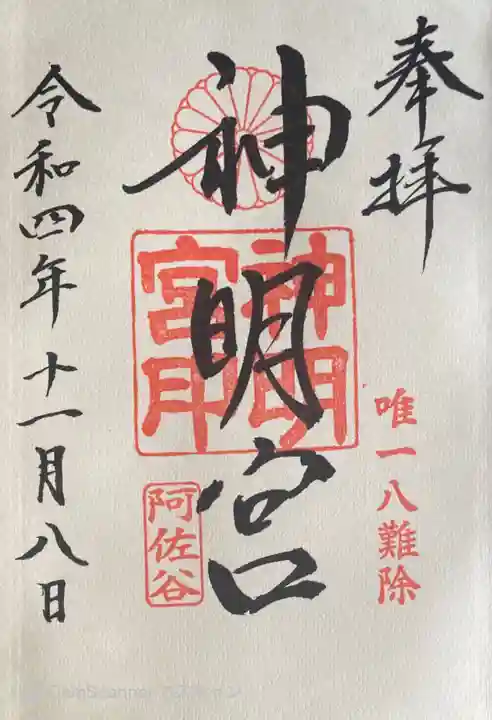 奉拝
唯一八難除
神明宮
神明
宮印
阿佐谷
令和四年十一月八日